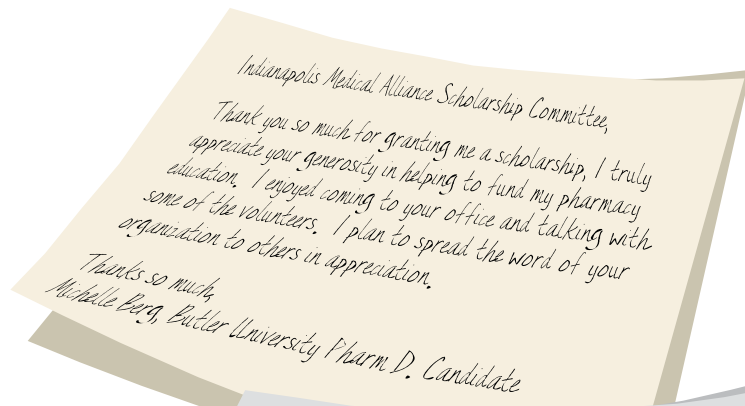 Indianapolis Medical Alliance Scholarship Committee,
Thank you so much for granting me a scholarship, I truly
appreciate your generosity in helping to fund my pharmacy
education. I enjoyed coming to your office and talking with
some of the volunteers. I plan to spread the word of your
organization to others in appreciation.
Thanks so much,
Michelle Berg, Butler University Pharm D. Candidate